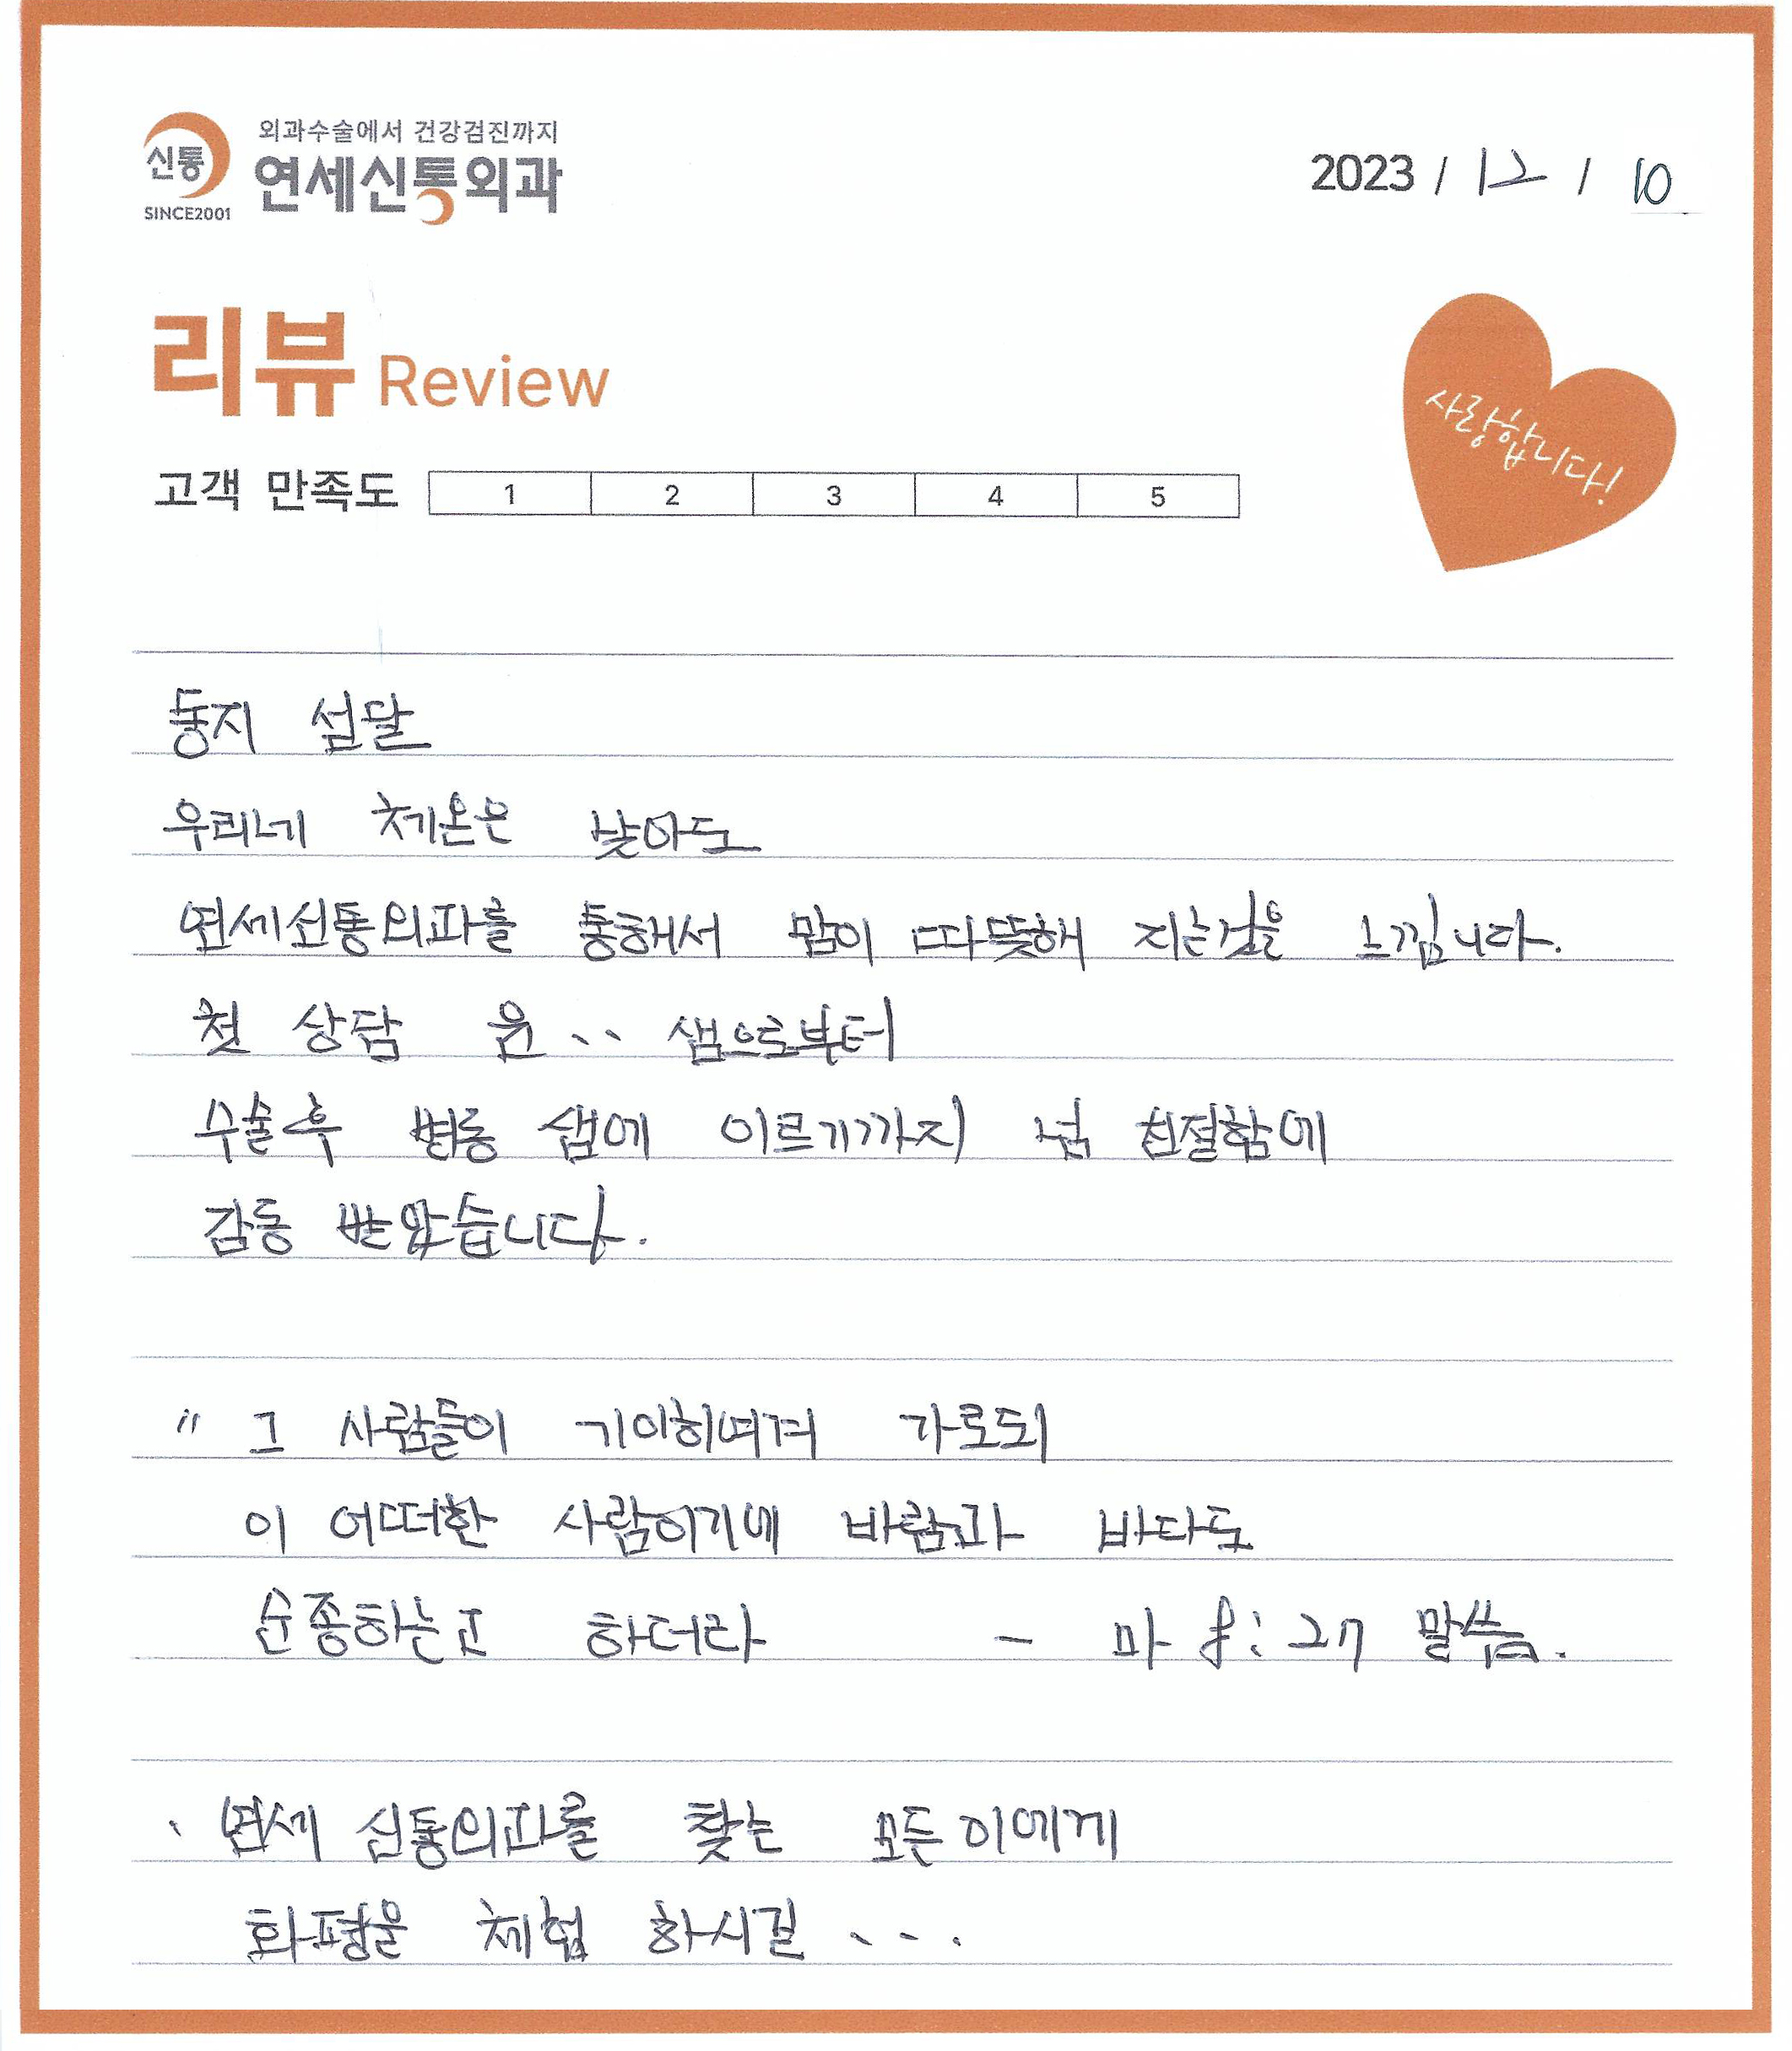 신통
SINCE2001
외과수술에서 건강검진까지
연세신통외과
2023 / 12 / 10
리뷰 Review
사랑합니다!
고객 만족도 1 2 3 4 5
동지 섣달
우리네 체온은 낮아도
연세신통외과를 통해서 맘이 따뜻해 지는걸을 느낌니다.
첫 상담 윤.. 샘으로부터
수술후 병동 샘에 이르기까지 넘 친절함에
감동 받았습니다.
" 그 사람들이 기이히여겨 가로되
이 어떠한 사람이기에 바람과 바다도
순종하는고 하더라 - 마 8:27 말씀.
· 연세 신통외과를 찾는 모든이에게
화평을 체험 하시길 ....